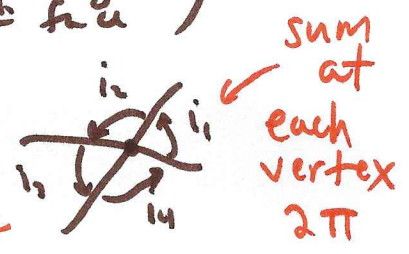 sum
at
each
vertex
2π
i₂
i₁
i₃
i₄